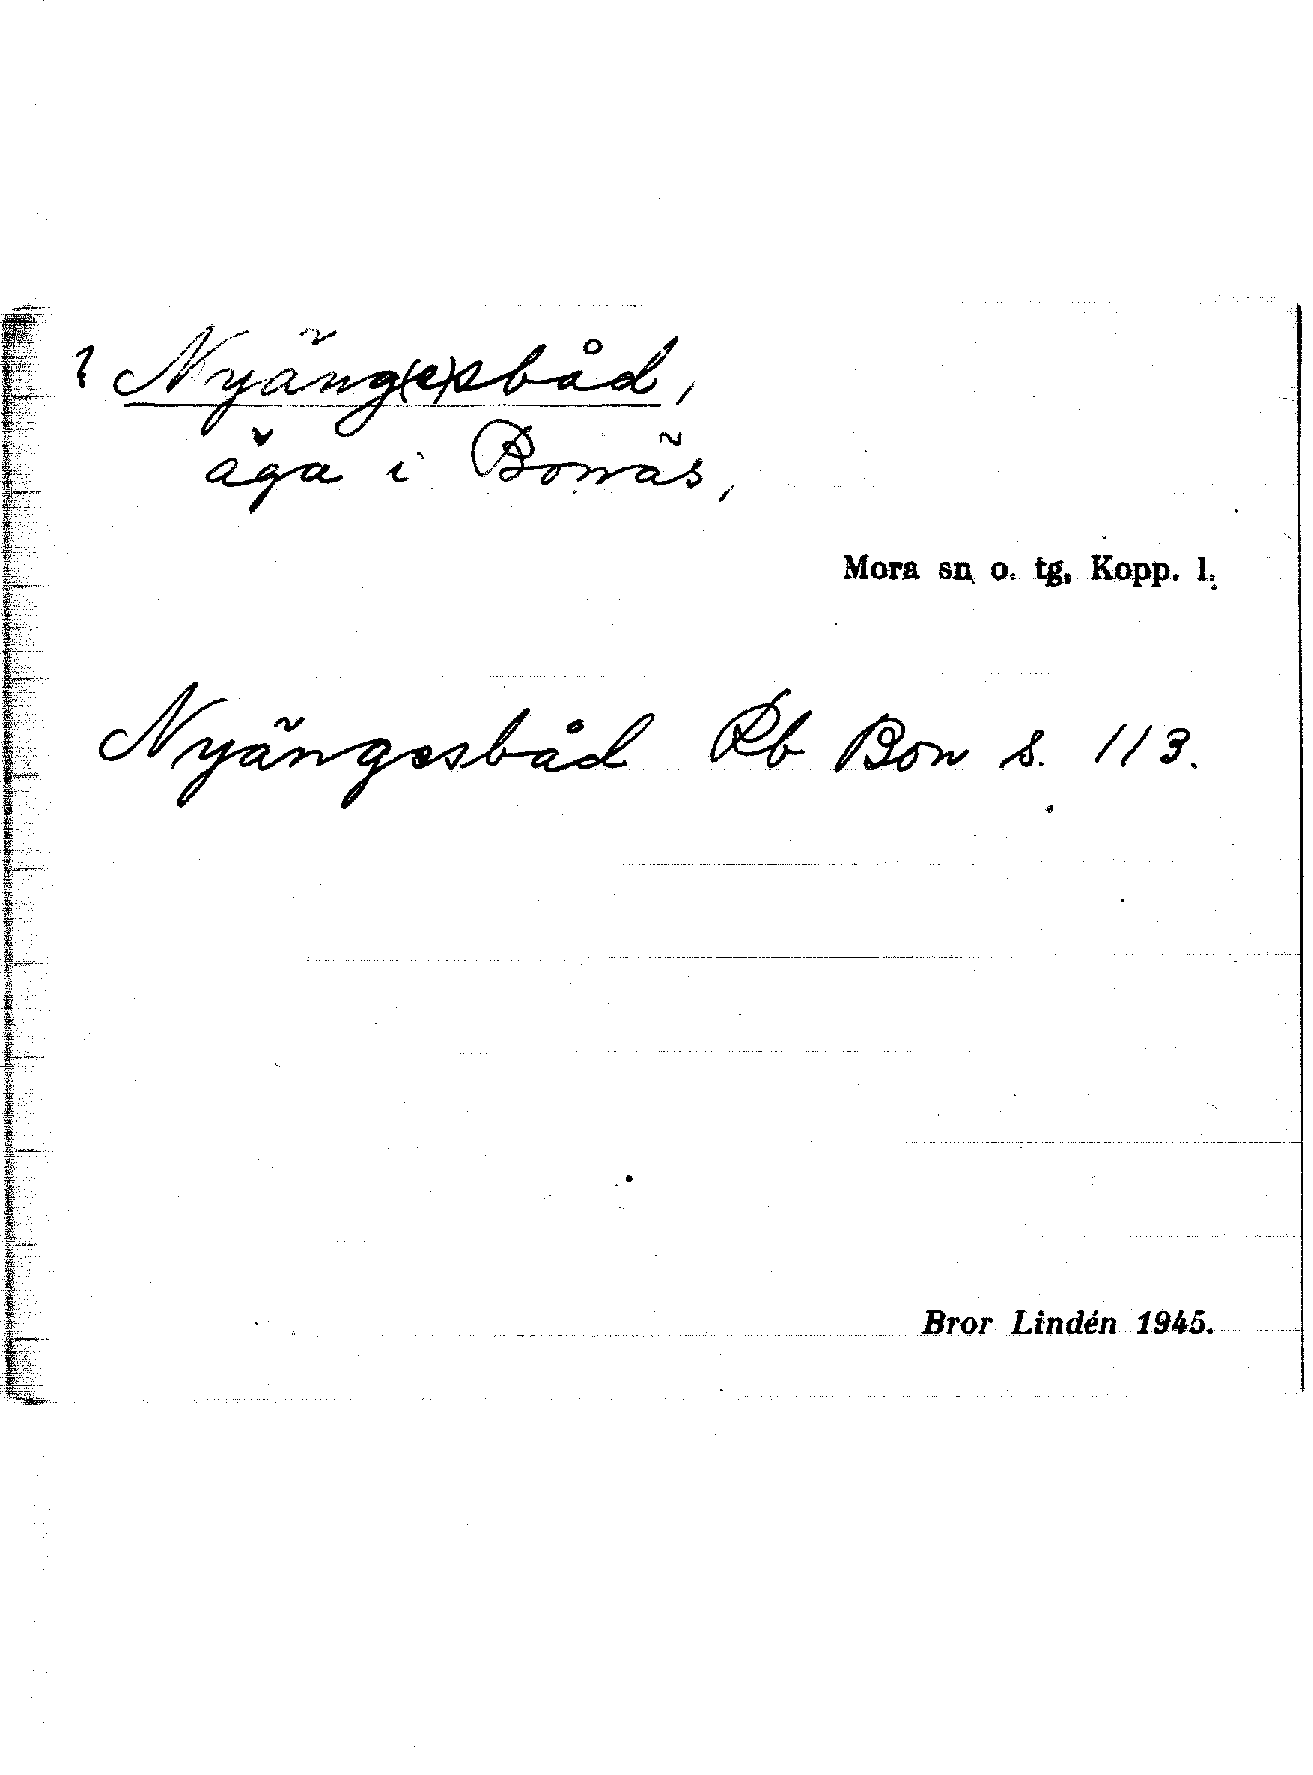 ? Nyäng(e)sbåd,
äga i Bonäs,
Mora sn o. tg, Kopp. l.
Nyängesbåd Rb Bon s. 113.
Bror Lindén 1945.